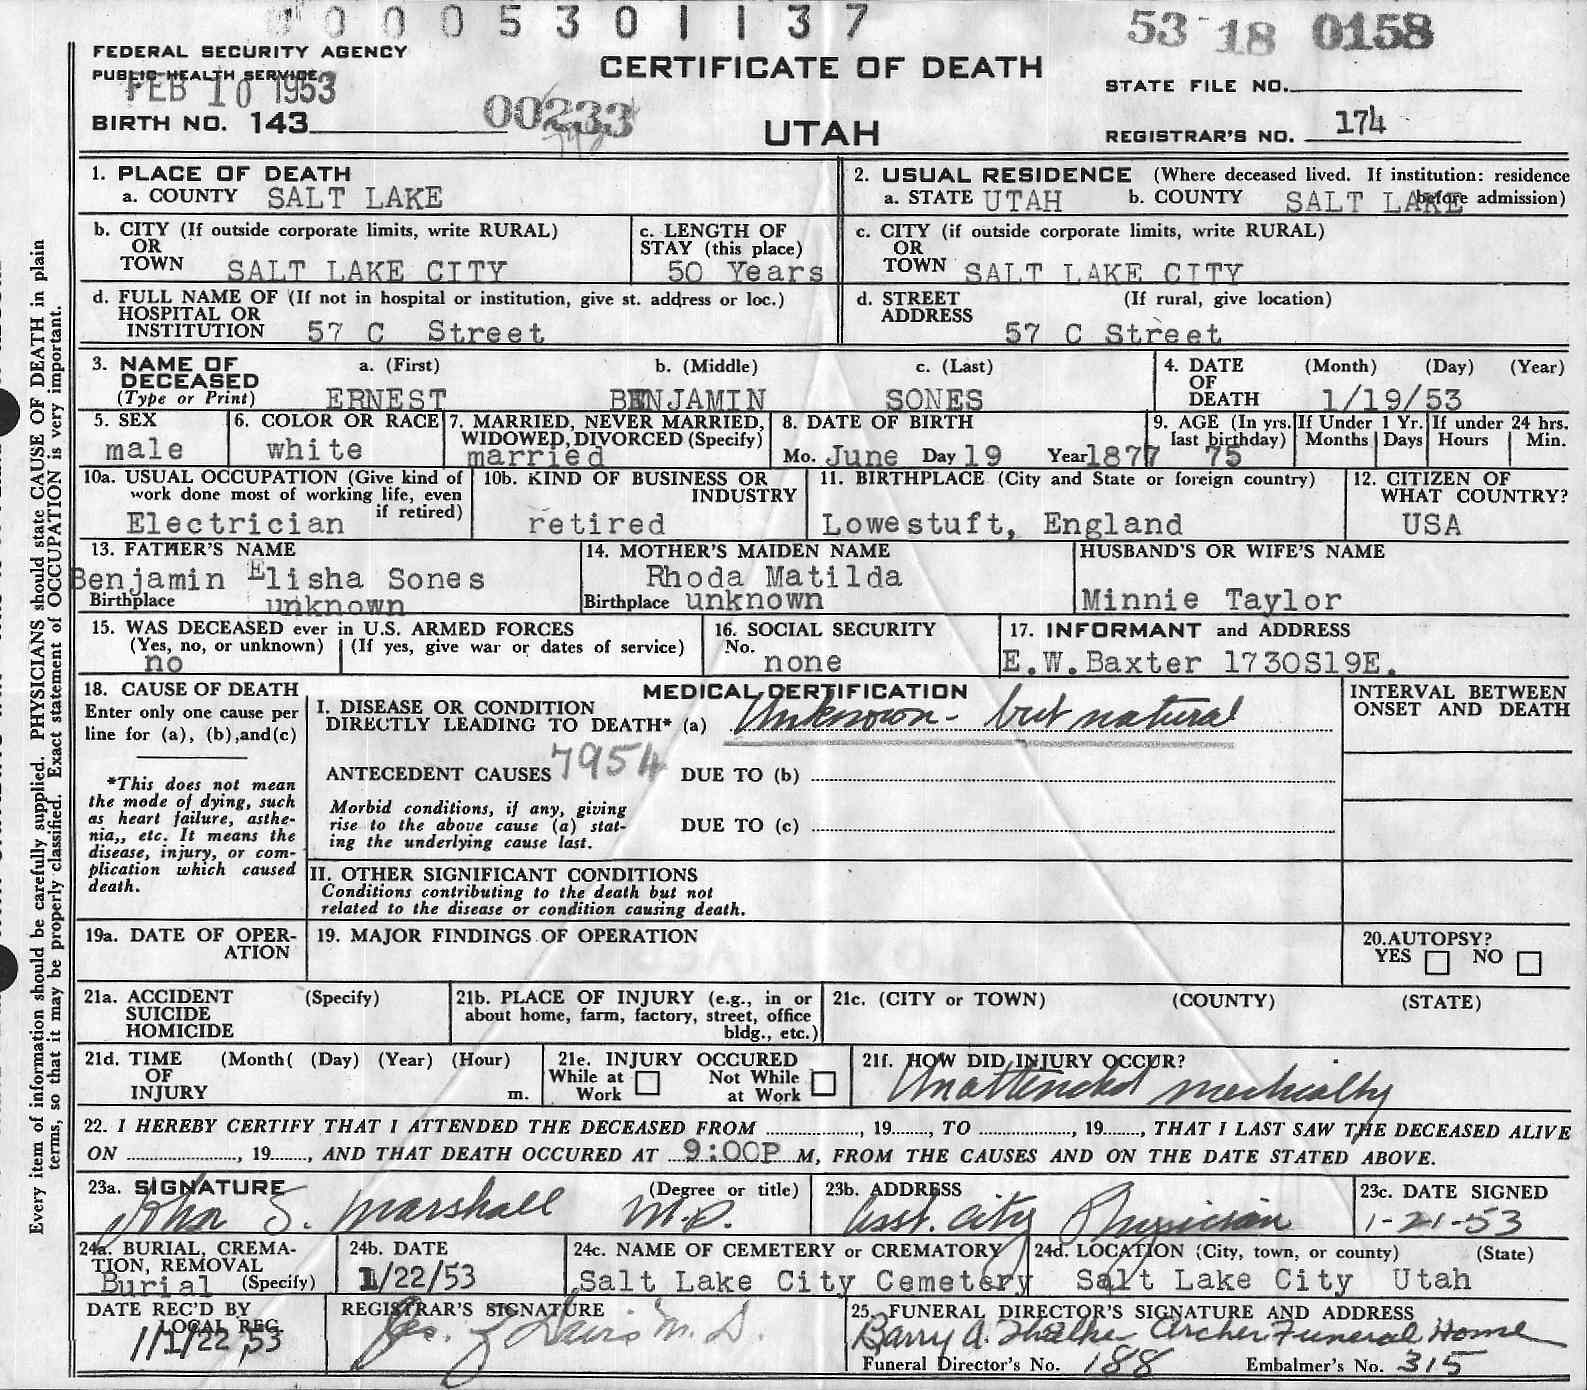 0 0 0 0 5 3 0 1 1 3 7
53 18 0158
FEDERAL SECURITY AGENCY
PUBLIC HEALTH SERVICE
FEB 10 1953
CERTIFICATE OF DEATH
STATE FILE NO.
BIRTH NO. 143
00233
UTAH
REGISTRAR'S NO. 174
1. PLACE OF DEATH
a. COUNTY SALT LAKE
2. USUAL RESIDENCE (Where deceased lived. If institution: residence before admission)
a. STATE UTAH b. COUNTY SALT LAKE
b. CITY (If outside corporate limits, write RURAL)
OR
TOWN SALT LAKE CITY
c. LENGTH OF
STAY (this place)
50 Years
c. CITY (if outside corporate limits, write RURAL)
OR
TOWN SALT LAKE CITY
d. FULL NAME OF (If not in hospital or institution, give st. address or loc.)
HOSPITAL OR
INSTITUTION 57 C Street
d. STREET (If rural, give location)
ADDRESS
57 C Street
3. NAME OF a. (First) b. (Middle) c. (Last)
DECEASED
(Type or Print) ERNEST BENJAMIN SONES
4. DATE (Month) (Day) (Year)
OF
DEATH 1/19/53
5. SEX
male
6. COLOR OR RACE
white
7. MARRIED, NEVER MARRIED,
WIDOWED, DIVORCED (Specify)
married
8. DATE OF BIRTH
Mo. June Day 19 Year 1877
9. AGE (In yrs.
last birthday)
75
If Under 1 Yr.
Months Days
If under 24 hrs.
Hours Min.
10a. USUAL OCCUPATION (Give kind of
work done most of working life, even
if retired)
Electrician
10b. KIND OF BUSINESS OR
INDUSTRY
retired
11. BIRTHPLACE (City and State or foreign country)
Lowestuft, England
12. CITIZEN OF
WHAT COUNTRY?
USA
13. FATHER'S NAME
Benjamin Elisha Sones
Birthplace unknown
14. MOTHER'S MAIDEN NAME
Rhoda Matilda
Birthplace unknown
HUSBAND'S OR WIFE'S NAME
Minnie Taylor
15. WAS DECEASED ever in U.S. ARMED FORCES
(Yes, no, or unknown) (If yes, give war or dates of service)
no
16. SOCIAL SECURITY
No.
none
17. INFORMANT and ADDRESS
E.W.Baxter 1730S19E.
18. CAUSE OF DEATH
Enter only one cause per
line for (a), (b),and(c)
*This does not mean
the mode of dying, such
as heart failure, asthe-
nia,, etc. It means the
disease, injury, or com-
plication which caused
death.
MEDICAL CERTIFICATION
I. DISEASE OR CONDITION
DIRECTLY LEADING TO DEATH* (a) Unknown - but natural
ANTECEDENT CAUSES 7954 DUE TO (b)
Morbid conditions, if any, giving
rise to the above cause (a) stat-
ing the underlying cause last.
DUE TO (c)
II. OTHER SIGNIFICANT CONDITIONS
Conditions contributing to the death but not
related to the disease or condition causing death.
INTERVAL BETWEEN
ONSET AND DEATH
19a. DATE OF OPER-
ATION
19. MAJOR FINDINGS OF OPERATION
20.AUTOPSY?
YES NO
21a. ACCIDENT (Specify)
SUICIDE
HOMICIDE
21b. PLACE OF INJURY (e.g., in or
about home, farm, factory, street, office
bldg., etc.)
21c. (CITY or TOWN) (COUNTY) (STATE)
21d. TIME (Month( (Day) (Year) (Hour)
OF
INJURY m.
21e. INJURY OCCURED
While at Work Not While at Work
21f. HOW DID INJURY OCCUR?
Unattended medically
22. I HEREBY CERTIFY THAT I ATTENDED THE DECEASED FROM ..............., 19......, TO ..............., 19......, THAT I LAST SAW THE DECEASED ALIVE
ON ..............., 19......, AND THAT DEATH OCCURED AT 9:00P M, FROM THE CAUSES AND ON THE DATE STATED ABOVE.
23a. SIGNATURE (Degree or title)
John S. Marshall M.D.
23b. ADDRESS
Asst. City Physician
23c. DATE SIGNED
1-21-53
24a. BURIAL, CREMA-
TION, REMOVAL
Burial (Specify)
24b. DATE
1/22/53
24c. NAME OF CEMETERY or CREMATORY
Salt Lake City Cemetery
24d. LOCATION (City, town, or county) (State)
Salt Lake City Utah
DATE REC'D BY
LOCAL REG.
1/22/53
REGISTRAR'S SIGNATURE
M.D.
25. FUNERAL DIRECTOR'S SIGNATURE AND ADDRESS
Barry A. Archer Funeral Home
Funeral Director's No. 188 Embalmer's No. 315
Every item of information should be carefully supplied. PHYSICIANS should state CAUSE OF DEATH in plain
terms, so that it may be properly classified. Exact statement of OCCUPATION is very important.